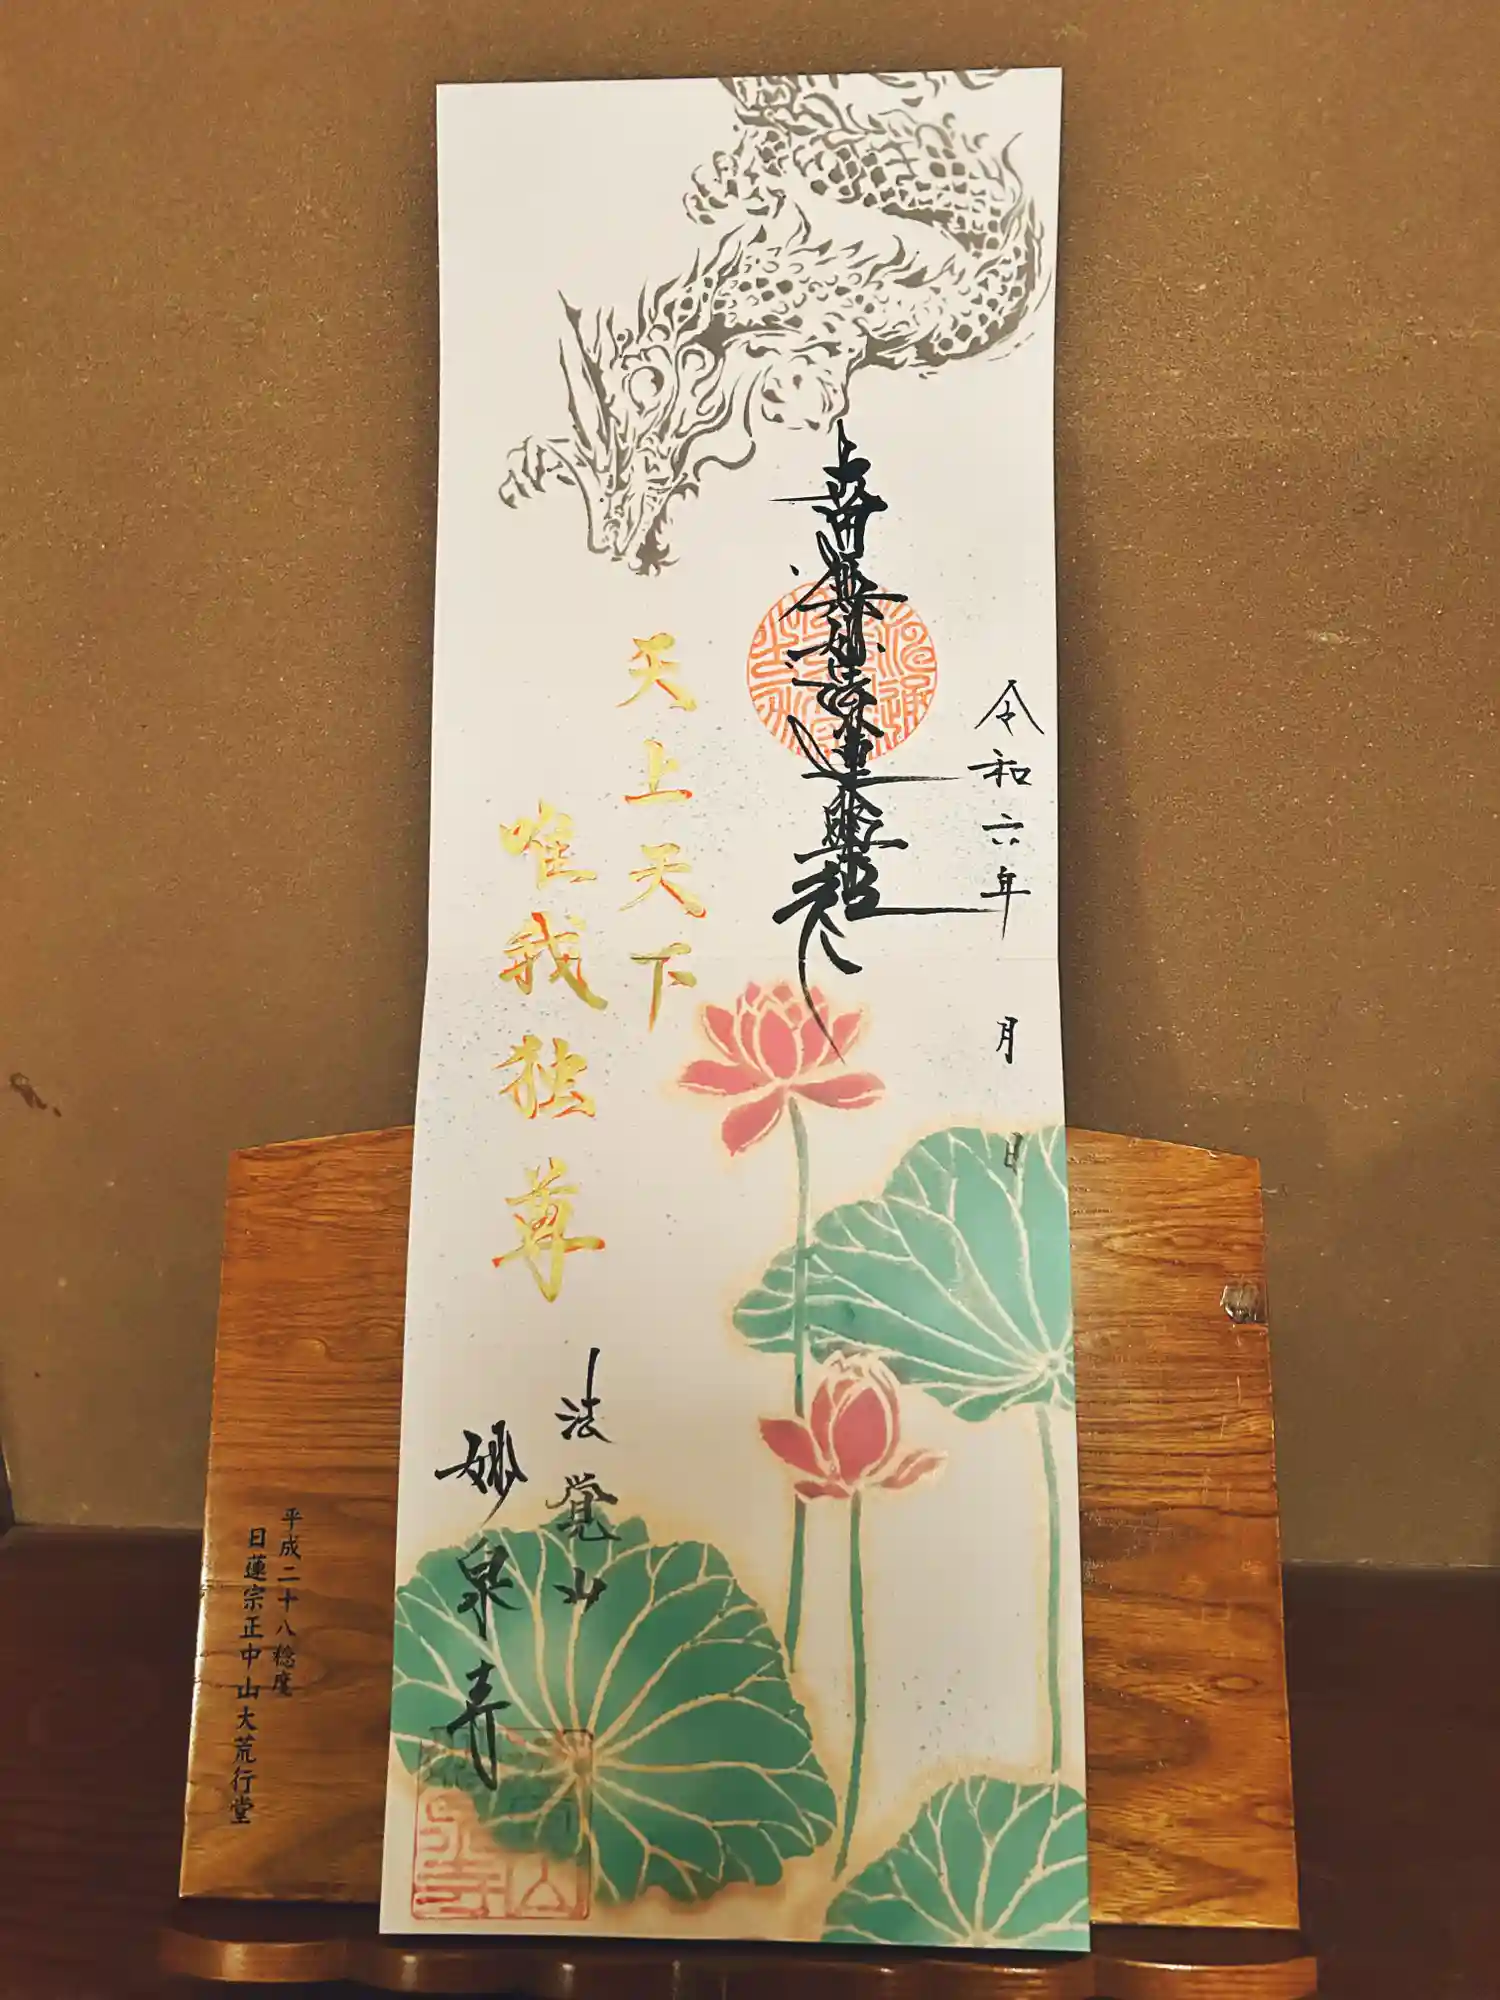 令和六年 月 日
南無妙法蓮華経
天上天下
唯我独尊
法覚山
妙泉寺
平成二十八稔度
日蓮宗正中山大荒行堂